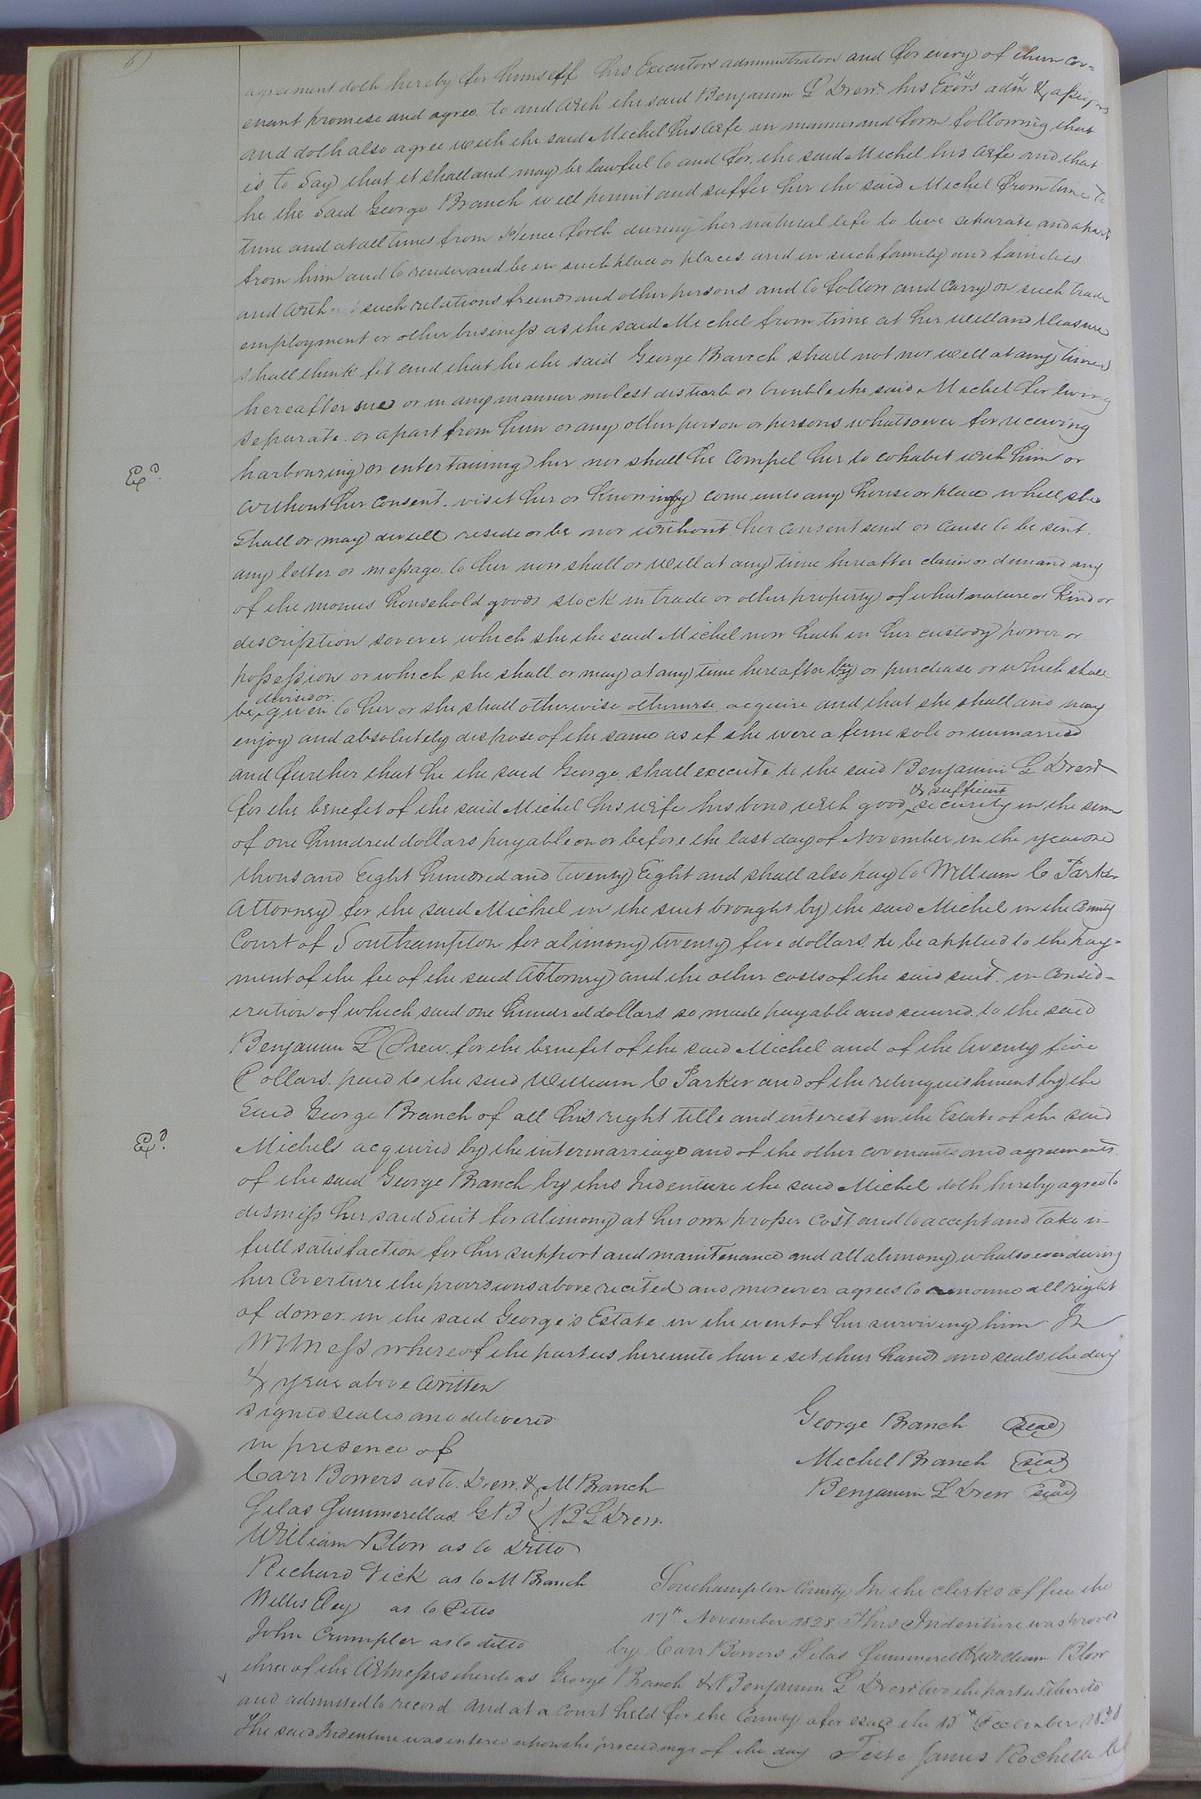 61
agreement doth hereby for himself his Executors administrators and for every of them cov=
enant promise and agree to and with the said Benjamin L Drew his Exors adn & assigns
and doth also agree with the said Michel his wife in manner and form following that
is to Say that it shall and may be lawful to and for the said Michel his wife and that
he the Said George Branch will permit and suffer her the said Michel from time to
time and at all times from Hence forth during her natural life to live separate and apart
from him and to reside and be in such place or places and in such family and families
and with such relations friends and other persons and to follow and carry on such trade
employment or other business as she said Michel from time at her will and pleasure
shall think fit and that he the said George Branch shall not nor will at any time
hereafter sue or in any manner molest disturb or trouble the said Michel for living
separate or apart from him or any other person or persons whatsoever for receiving
harbouring or entertaining her nor shall he compel her to cohabit with him or
without her consent visit her or knowingly come into any house or place where she
Shall or may dwell reside or be nor without her consent send or cause to be sent
any letter or message to her nor shall or will at any time hereafter claim or demand any
of the monies household goods stock in trade or other property of what nature or kind or
description soever which she the said Michel now hath in her custody power or
possession or which she shall or may at any time hereafter buy or purchase or which shall
devised or
be given to her or she shall otherwise otherwise acquire and that she shall and may
enjoy and absolutely dispose of the same as if she were a feme sole or unmarried
and further that he the said George shall execute to the said Benjamin L Drew
& sufficient
for the benefit of the said Michel his wife his bond with good security in the sum
of one hundred dollars payable on or before the last day of November in the year one
thousand Eight hundred and twenty Eight and shall also pay to William C Parker
Attorney for the said Michel in the suit brought by the said Michel in the County
Court of Southampton for alimony twenty five dollars to be applied to the pay-
ment of the fee of the said Attorney and the other costs of the said suit in consid-
eration of which said one hundred dollars so made payable and secured to the said
Benjamin L Drew for the benefit of the said Michel and of the twenty five
Dollars paid to the said William C Parker and of the relinquishment by the
Said George Branch of all his right title and interest in the Estate of the said
Michels acquired by the intermarriage and of the other covenants and agreements
of the said George Branch by this Indenture the said Michel doth hereby agree to
dismiss her said Suit for alimony at her own proper cost and to accept and take in
full satisfaction for her support and maintenance and all alimony whatsoever during
her Coverture the provisions above recited and moreover agrees to renounce all right
of dower in the said George's Estate in the event of her surviving him In
Witness whereof the parties hereunto have set their hands and seals the day
& year above written
signed sealed and delivered
in presence of
George Branch seal
Michel Branch seal
Benjamin L Drew seal
Carr Bowers as to Drew & M Branch
Silas Summerell as G B & B L Drew
William Blow as to Ditto
Richard Vick as to M Branch
Willis Eley as to Ditto
John Crumpler as to ditto
Southampton County In the clerks office the
17th November 1828 This Indenture was proved
by Carr Bowers Silas Summerell & William Blow
three of the Witnesses thereto as George Branch & Benjamin L Drew two the parties thereto
and admitted to record And at a Court held for the County aforesaid the 15th December 1828
The said Indenture was entered upon the proceedings of the day Teste James Rochelle Cl